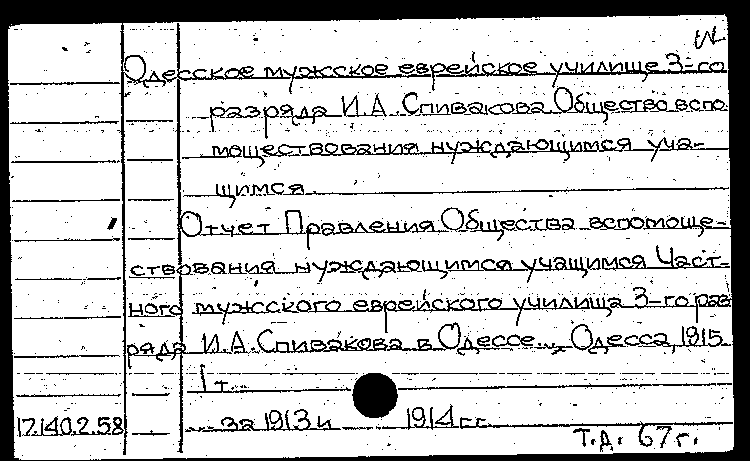 Одесское мужское еврейское училище 3-го
разряда И.А. Спивакова. Общество вспо
моществования нуждающимся уча-
щимся.
Отчет Правления Общества вспомоще-
ствования нуждающимся учащимся Част-
ного мужского еврейского училища 3-го раз
ряда И.А. Спивакова в Одессе... Одесса, 1915.
1 т.
17.140.2.58 ... за 1913 и 1914 гг.
Т.Д. 67 г.